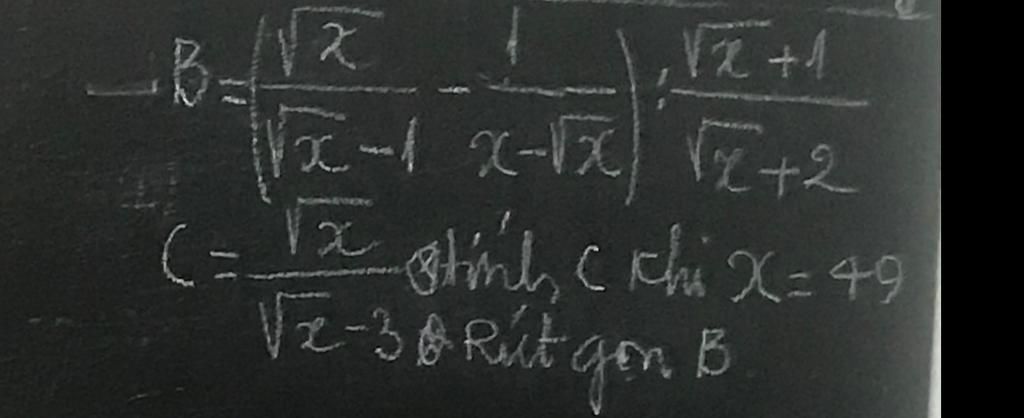 B = (√x / (√x - 1) - 1 / (x - √x)) : (√x + 1) / (√x + 2)
C = √x / (√x - 3) tính C khi x = 49
Rút gọn B